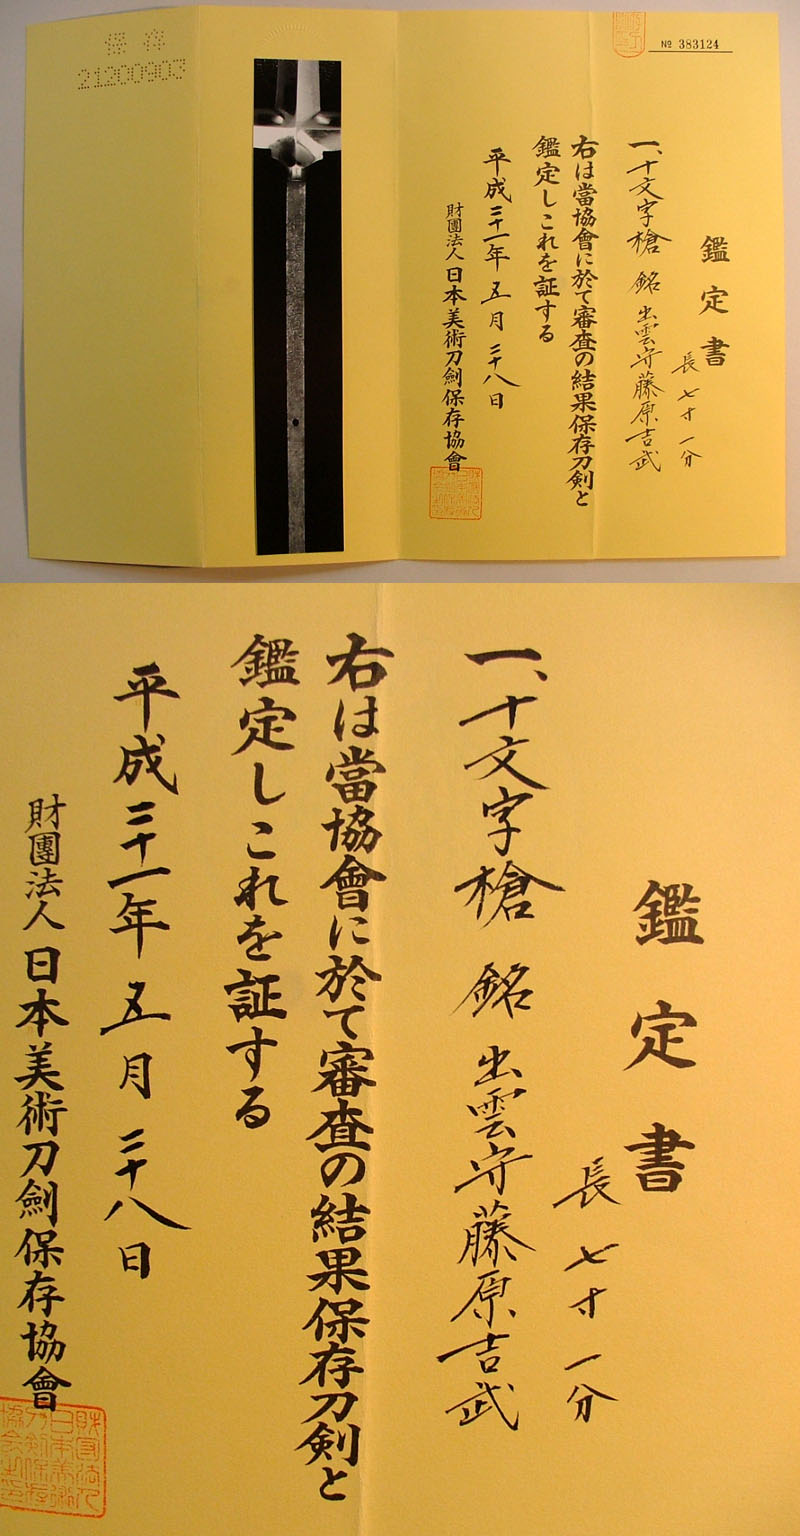 保存
21200903
№ 383124
鑑定書
長七寸一分
一、十文字槍 銘 出雲守藤原吉武
右は當協會に於て審査の結果保存刀剣と
鑑定しこれを証する
平成二十一年五月二十八日
財團法人 日本美術刀劍保存協會
鑑定書
長七寸一分
一、十文字槍 銘 出雲守藤原吉武
右は當協會に於て審査の結果保存刀剣と
鑑定しこれを証する
平成二十一年五月二十八日
財團法人 日本美術刀劍保存協會